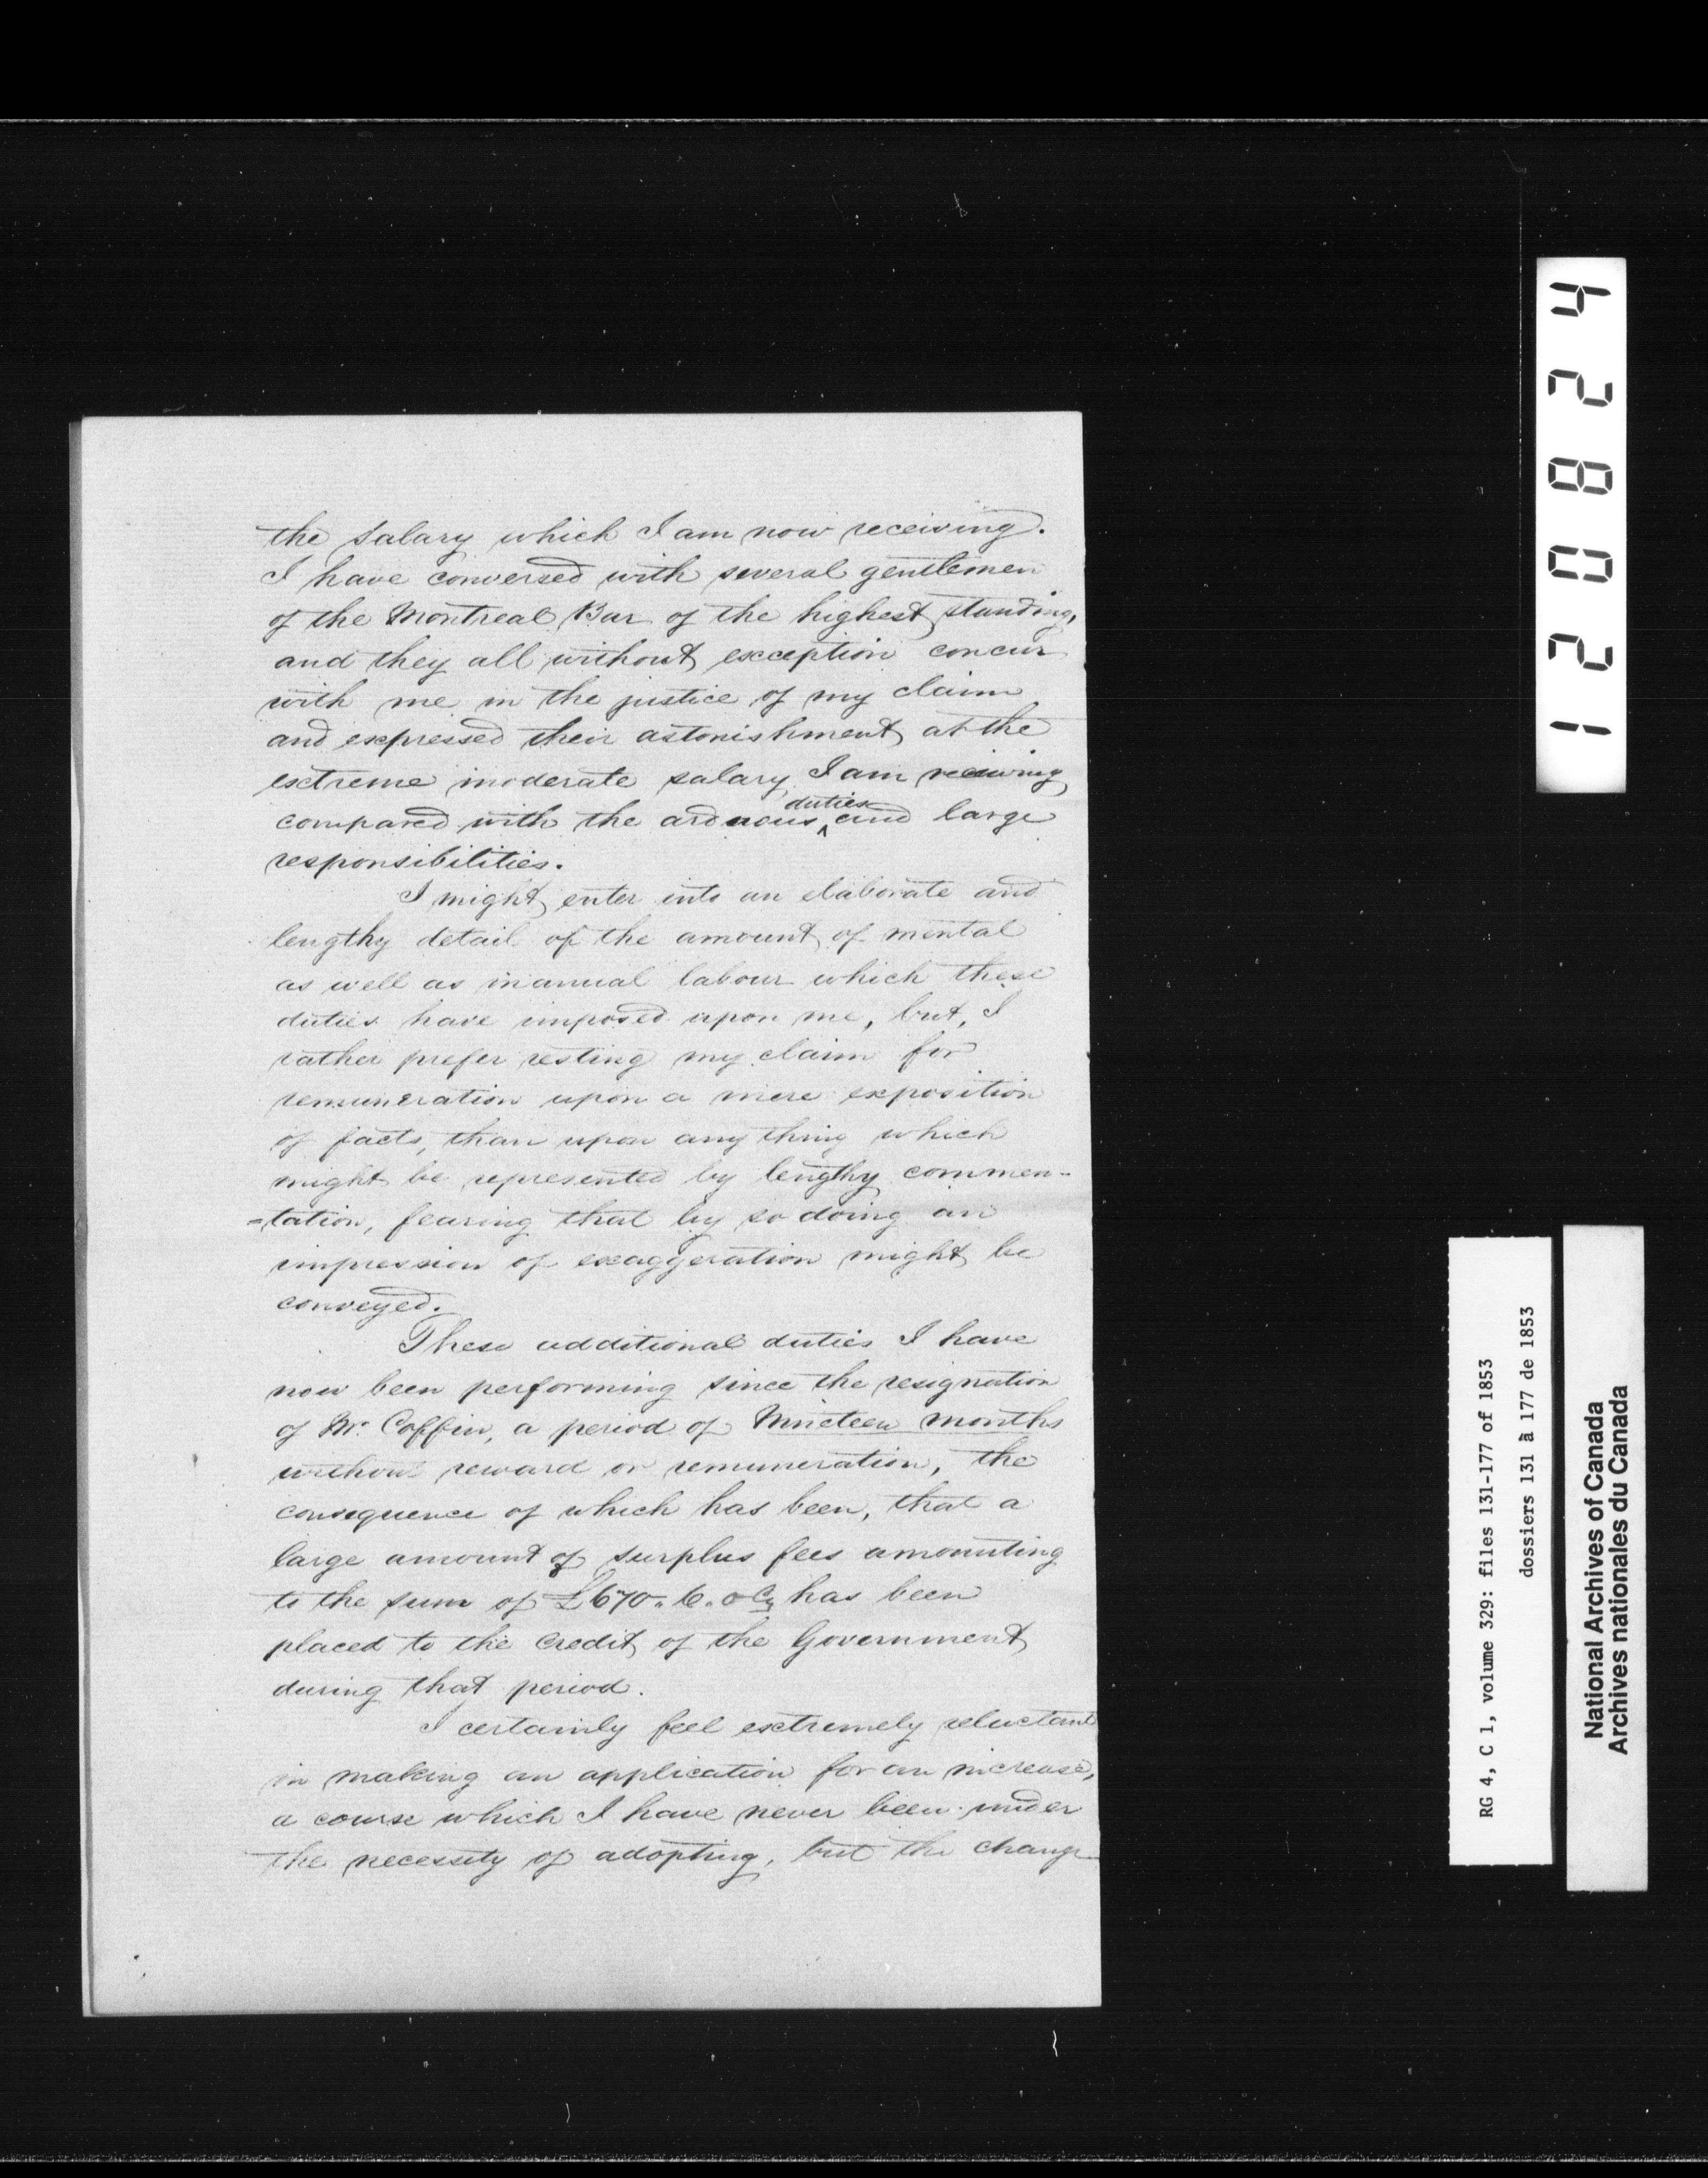 the salary which I am now receiving.
I have conversed with several gentlemen
of the Montreal Bar of the highest standing,
and they all without exception concur
with me in the justice of my claim
and expressed their astonishment at the
extreme moderate salary I am receiving
compared with the arduous duties and large
responsibilities.
I might enter into an elaborate and
lengthy detail of the amount of mental
as well as manual labour which these
duties have imposed upon me, but, I
rather prefer resting my claim for
remuneration upon a mere exposition
of facts, than upon any thing which
might be represented by lengthy commen-
=tation, fearing that by so doing an
impression of exaggeration might be
conveyed.
These additional duties I have
now been performing since the resignation
of Mr. Coffin, a period of Nineteen months
without reward or remuneration, the
consequence of which has been, that a
large amount of surplus fees amounting
to the sum of £670. 6. 0 Cy has been
placed to the credit of the Government
during that period.
I certainly feel extremely reluctant
in making an application for an increase,
a course which I have never been under
the necessity of adopting, but the change
120824
RG 4, C 1, volume 329: files 131-177 of 1853
dossiers 131 à 177 de 1853
National Archives of Canada
Archives nationales du Canada